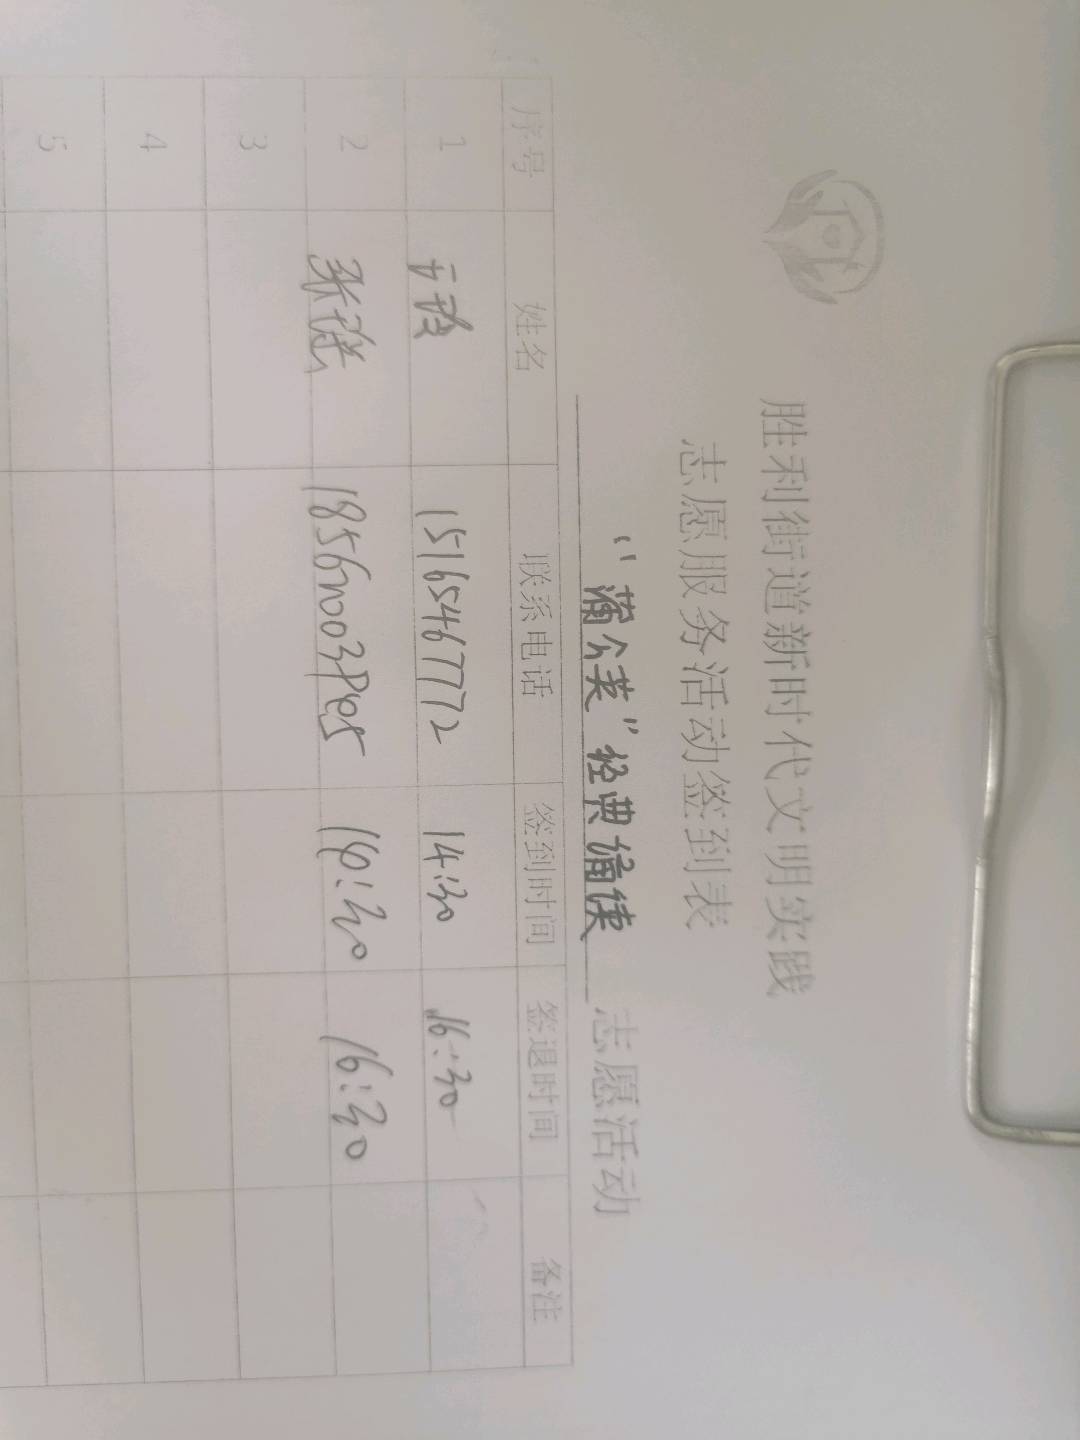 胜利街道新时代文明实践
志愿服务活动签到表
“蒲公英”经典诵读 志愿活动
序号 姓名 联系电话 签到时间 签退时间 备注
1 15165467772 14:30 16:30
2 张 16:30
3
4
5